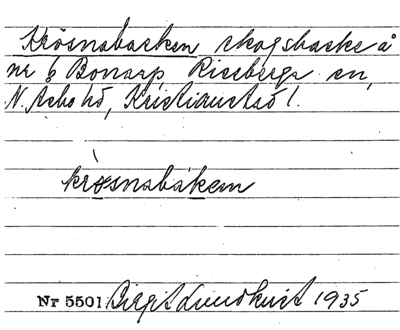 Krösnabacken skogsbacke å
nr 6 Bonarp Riseberga sn,
N. Åsbo hd, Kristianstad l.
krösnabákem
Nr 5501 Birgit Lundkvist 1935